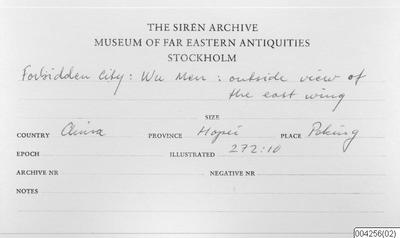 THE SIRÉN ARCHIVE
MUSEUM OF FAR EASTERN ANTIQUITIES
STOCKHOLM
Forbidden City: Wu Men: outside view of
the east wing
SIZE
COUNTRY China PROVINCE Hopei PLACE Peking
EPOCH ILLUSTRATED 272:10
ARCHIVE NR NEGATIVE NR
NOTES
004256(02)